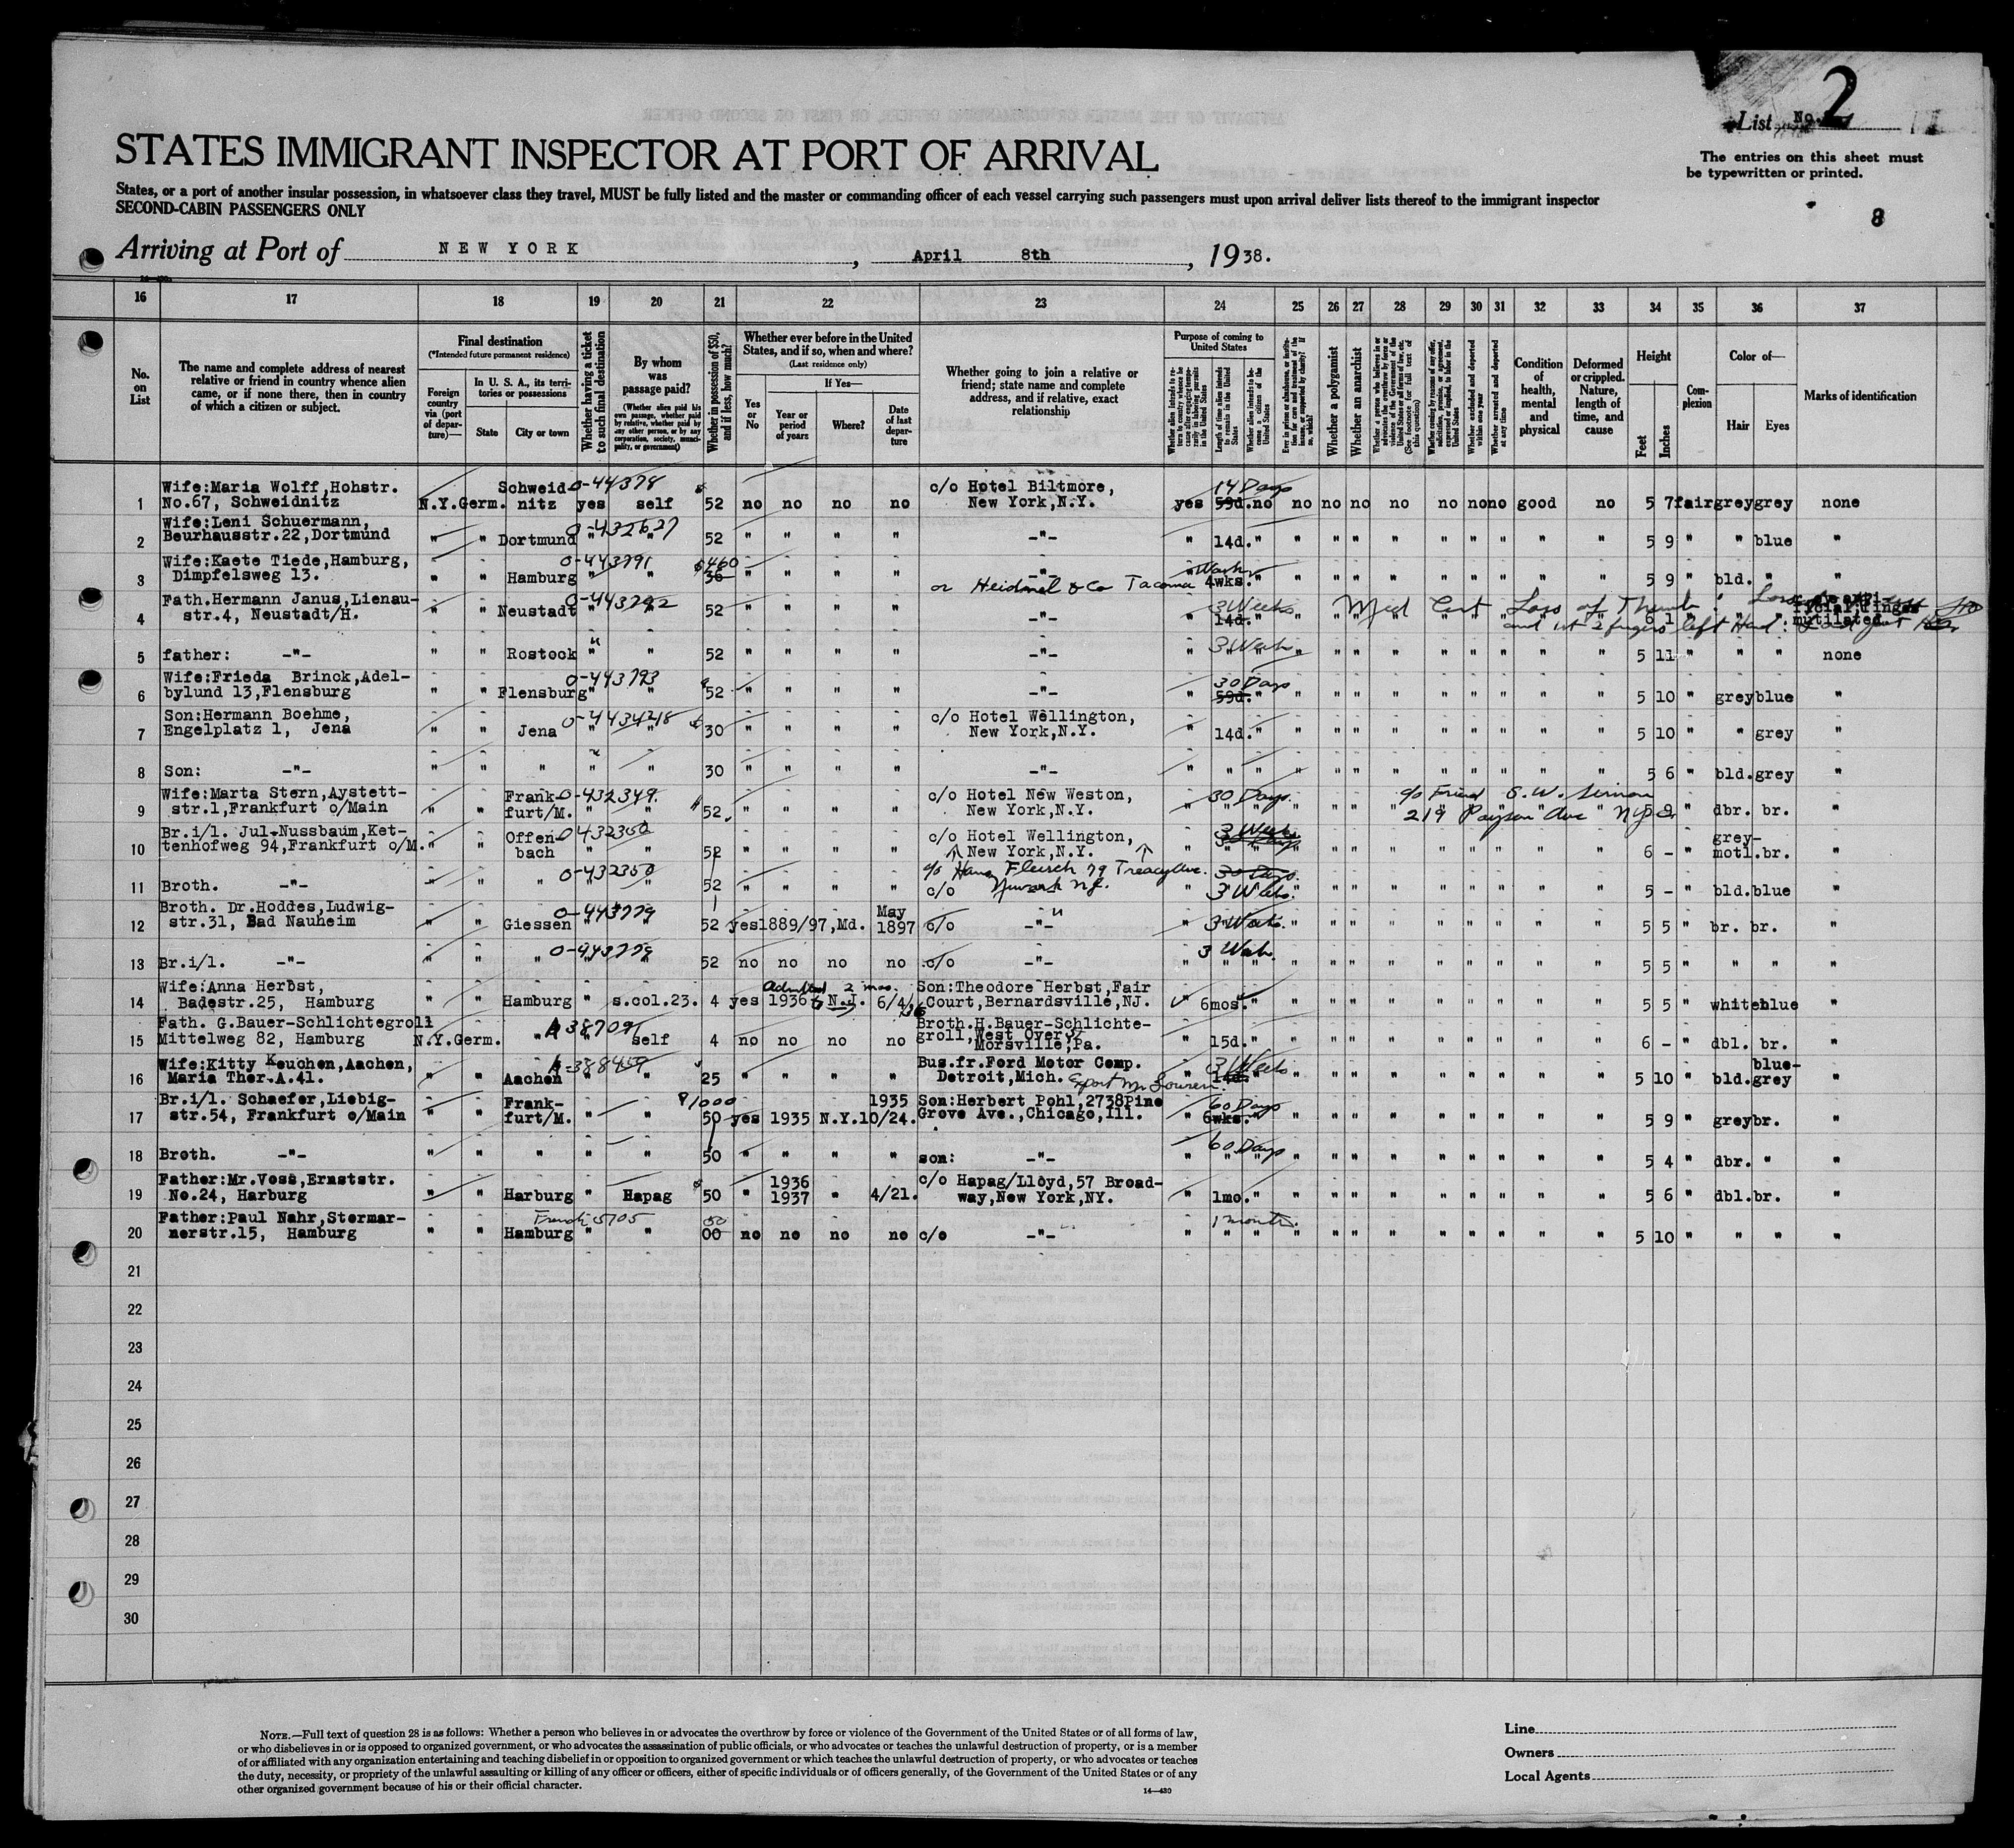 2
List No.
The entries on this sheet must
be typewritten or printed.
8
STATES IMMIGRANT INSPECTOR AT PORT OF ARRIVAL
States, or a port of another insular possession, in whatsoever class they travel, MUST be fully listed and the master or commanding officer of each vessel carrying such passengers must upon arrival deliver lists thereof to the immigrant inspector
SECOND-CABIN PASSENGERS ONLY
Arriving at Port of NEW YORK, April 8th, 1938.
16 17 18 19 20 21 22 23 24 25 26 27 28 29 30 31 32 33 34 35 36 37
No. on List
The name and complete address of nearest relative or friend in country whence alien came, or if none there, then in country of which a citizen or subject.
Final destination
(*Intended future permanent residence)
Foreign country via (port of departure)—
In U. S. A., its territories or possessions
State City or town
Whether having a ticket to such final destination
By whom was passage paid?
(Whether alien paid his own passage, whether paid by relative, whether paid by any other person, or by any corporation, society, municipality, or government)
Whether in possession of $50, and if less, how much?
Whether ever before in the United States, and if so, when and where?
(Last residence only)
Yes or No
If Yes—
Year or period of years
Where?
Date of last departure
Whether going to join a relative or friend; state name and complete address, and if relative, exact relationship
Purpose of coming to United States
Length of time alien intends to remain in the United States
Whether alien intends to become a citizen of the United States
Whether a polygamist
Whether an anarchist
Whether excluded and deported within one year
Whether arrested and deported at any time
Condition of health, mental and physical
Deformed or crippled. Nature, length of time, and cause
Height
Feet Inches
Complexion
Color of—
Hair Eyes
Marks of identification
1 Wife:Maria Wolff,Hohstr. No.67, Schweidnitz N.Y.Germ. Schweidnitz 0-44378 yes self 52 no no no no c/o Hotel Biltmore, New York,N.Y. yes 14 Days 59d. no no no no no no no no good no 5 7 fair grey grey none
2 Wife:Leni Schuermann, Beurhausstr.22,Dortmund " " Dortmund 0-432627 " 52 " " " " -"- " 14d. " " " " " " " " " " 5 9 " " blue "
3 Wife:Kaete Tiede,Hamburg, Dimpfelsweg 13. " " Hamburg 0-443791 " " $460 30 " " " " -"- or Heidmel & Co Tacoma " 4wks. " " " " " " " " " " 5 9 " bld. " "
4 Fath.Hermann Janus,Lienaustr.4, Neustadt/H. " " Neustadt 0-443792 " " 52 " " " " -"- " 3 Weeks 14d. Med Cert Loss of Thumb and 1st 2 fingers left Hand 6 1 mutilated
5 father: -"- " " Rostock " " 52 " " " " -"- " 3 Weeks " " " " " " " " " 5 11 " " " none
6 Wife:Frieda Brinck,Adelbylund 13,Flensburg " " Flensburg 0-443793 " " 52 " " " " -"- " 30 Days 59d. " " " " " " " " " " 5 10 " grey blue "
7 Son:Hermann Boehme, Engelplatz 1, Jena " " Jena 0-443428 " " 30 " " " " c/o Hotel Wellington, New York,N.Y. " 14d. " " " " " " " " " " 5 10 " " grey "
8 Son: -"- " " " " " 30 " " " " -"- " " " " " " " " " " " " 5 6 " bld. grey "
9 Wife:Marta Stern,Aystettstr.1,Frankfurt o/Main " " Frankfurt/M. 0-432349. " " 52 " " " " c/o Hotel New Weston, New York,N.Y. " 30 Days. c/o Friend S. W. Simon 219 Payson Ave NYC 5 " dbr. br. "
10 Br.i/l. Jul.Nussbaum,Kettenhofweg 94,Frankfurt o/M. " " Offenbach 0-432350 " 52 " " " " c/o Hotel Wellington, New York,N.Y. " 3 Weeks " " " " " " " " " " 6 - " grey-motl. br. "
11 Broth. -"- " " " 0-432350 " 52 " " " " c/o Hans Fleisch 79 Treacy Ave. Newark N.J. c/o " 30 Days. 3 Weeks. " " " " " " " " " 5 - " bld. blue "
12 Broth. Dr.Hoddes,Ludwigstr.31, Bad Nauheim " " Giessen 0-443779 " " 52 yes 1889/97,Md. May 1897 c/o -"- " 3 Weeks. " " " " " " " " " 5 5 " br. br. "
13 Br.i/l. -"- " " " 0-443779 " " 52 no no no no c/o -"- " 3 Weeks. " " " " " " " " " 5 5 " " " "
14 Wife:Anna Herbst, Badestr.25, Hamburg " " Hamburg " s.col.23. 4 yes Admitted 2 mos. 1936 N.J. 6/4/36 Son:Theodore Herbst,Fair Court,Bernardsville,NJ. " 6mos. " " " " " " " " " " 5 5 " white blue "
15 Fath. G.Bauer-Schlichtegroll Mittelweg 82, Hamburg N.Y.Germ. " A 38709 " self 4 no no no no Broth.H.Bauer-Schlichtegroll,West Over St Morsville,Pa. " 15d. " " " " " " " " " " 6 - " dbl. br. "
16 Wife:Kitty Keuchen,Aachen, Maria Ther.A.41. " " Aachen A-388459 " " 25 " " " " Bus.fr.Ford Motor Comp. Detroit,Mich. " 3 Weeks 14d. " " " " " " " " " " 5 10 " bld. blue-grey "
17 Br.i/l. Schaefer,Liebigstr.54, Frankfurt o/Main " " Frankfurt/M. " " $1000 50 yes 1935 N.Y. 1935 10/24. Son:Herbert Pohl,2738Pine Grove Ave.,Chicago,Ill. " 60 Days 6wks. " " " " " " " " " " 5 9 " grey br. "
18 Broth. -"- " " " " " 50 " " " " son: -"- " 60 Days " " " " " " " " " 5 4 " dbr. " "
19 Father:Mr.Voss,Ernststr. No.24, Harburg " " Harburg " Hapag 50 " 1936 1937 " 4/21. c/o Hapag/Lloyd,57 Broadway,New York,NY. " 1mo. " " " " " " " " " " 5 6 " dbl. br. "
20 Father:Paul Nahr,Stormarnerstr.15, Hamburg " " Hamburg 5705 " " 50 00 no no no no c/o -"- " 1 month. " " " " " " " " " 5 10 " " " "
21
22
23
24
25
26
27
28
29
30
NOTE.—Full text of question 28 is as follows: Whether a person who believes in or advocates the overthrow by force or violence of the Government of the United States or of all forms of law,
or who disbelieves in or is opposed to organized government, or who advocates the assassination of public officials, or who advocates or teaches the unlawful destruction of property, or is a member
of or affiliated with any organization entertaining and teaching disbelief in or opposition to organized government or which teaches the unlawful destruction of property, or who advocates or teaches
the duty, necessity, or propriety of the unlawful assaulting or killing of any officer or officers, either of specific individuals or of officers generally, of the Government of the United States or of any
other organized government because of his or their official character.
14—430
Line
Owners
Local Agents